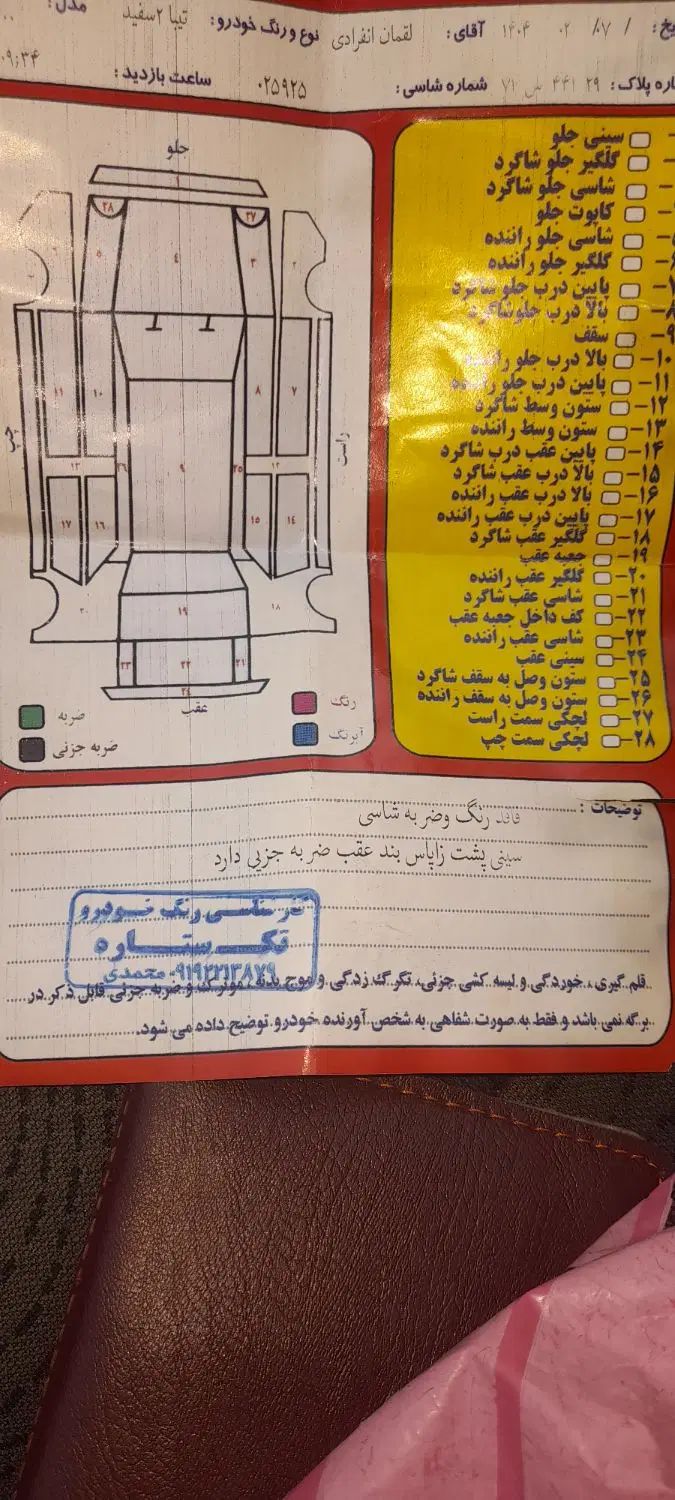 ۱۴۰۴ ۰۲ /۰۷ / آقای : لقمان انفرادی نوع و رنگ خودرو: تیبا ۲سفید مدل:
پلاک : ۲۹ ۴۴۱ س ۷۱ شماره شاسی: ۰۲۵۹۲۵ ساعت بازدید : ۰۹:۳۴
سینی جلو
گلگیر جلو شاگرد
شاسی جلو شاگرد
کاپوت جلو
شاسی جلو راننده
گلگیر جلو راننده
۷- پایین درب جلو شاگرد
۸- بالا درب جلو شاگرد
۹- سقف
۱۰- بالا درب جلو راننده
۱۱- پایین درب جلو راننده
۱۲- ستون وسط شاگرد
۱۳- ستون وسط راننده
۱۴- پایین عقب درب شاگرد
۱۵- بالا درب عقب شاگرد
۱۶- بالا درب عقب راننده
۱۷- پایین درب عقب راننده
۱۸- گلگیر عقب شاگرد
۱۹- جعبه عقب
۲۰- گلگیر عقب راننده
۲۱- شاسی عقب شاگرد
۲۲- کف داخل جعبه عقب
۲۳- شاسی عقب راننده
۲۴- سینی عقب
۲۵- ستون وصل به سقف شاگرد
۲۶- ستون وصل به سقف راننده
۲۷- لچکی سمت راست
۲۸- لچکی سمت چپ
جلو
۱
۲۷ ۲۸
۲ ۳ ۴ ۵
۷ ۸ ۱۰ ۱۱
راست چپ
۱۲ ۲۵ ۹ ۲۶ ۱۳
۱۴ ۱۵ ۱۶ ۱۷
۱۸ ۱۹ ۲۰
۲۱ ۲۲ ۲۳
۲۴
عقب
رنگ ضربه
آبرنگ ضربه جزئی
توضیحات : فاقد رنگ وضر به شاسی
سینی پشت زاپاس بند عقب ضر به جزیی دارد
کارشناسی رنگ خودرو
تک ستاره
۰۹۱۹۲۲۱۳۸۷۹ محمدی
قلم گیری، خوردگی و لیسه کشی جزئی، تگرگ زدگی و موج بدنه، موترک و ضربه جزئی قابل ذکر در
برگه نمی باشد و فقط به صورت شفاهی به شخص آورنده خودرو توضیح داده می شود.